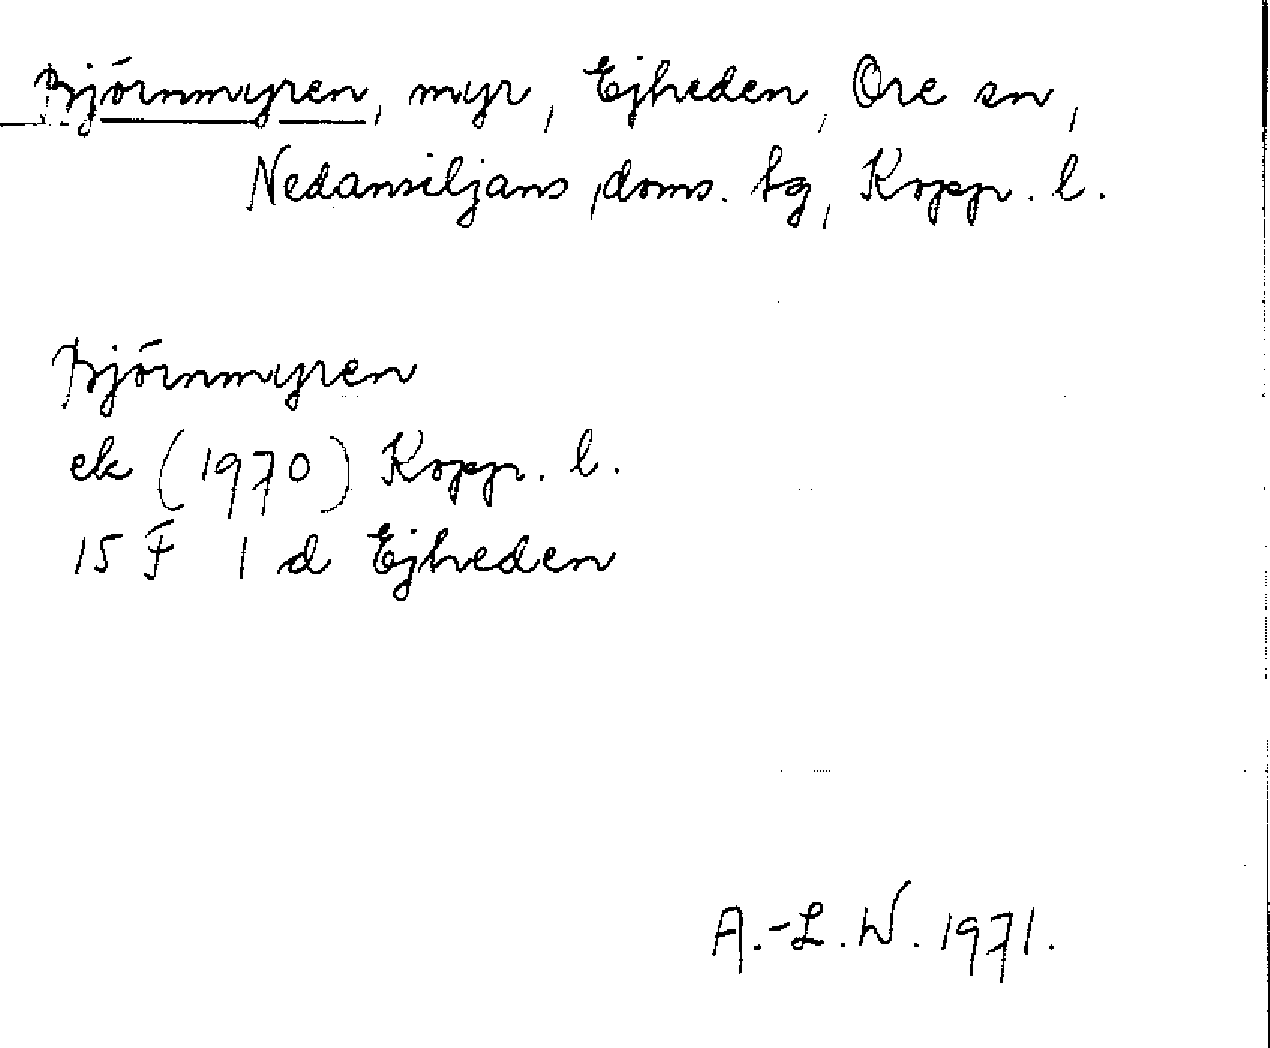 Björnmyren, myr, Ejheden, Ore sn,
Nedansiljans doms. tg, Kopp. l.
Björnmyren
ek (1970) Kopp. l.
15 F 1 d Ejheden
A.-L. W. 1971.